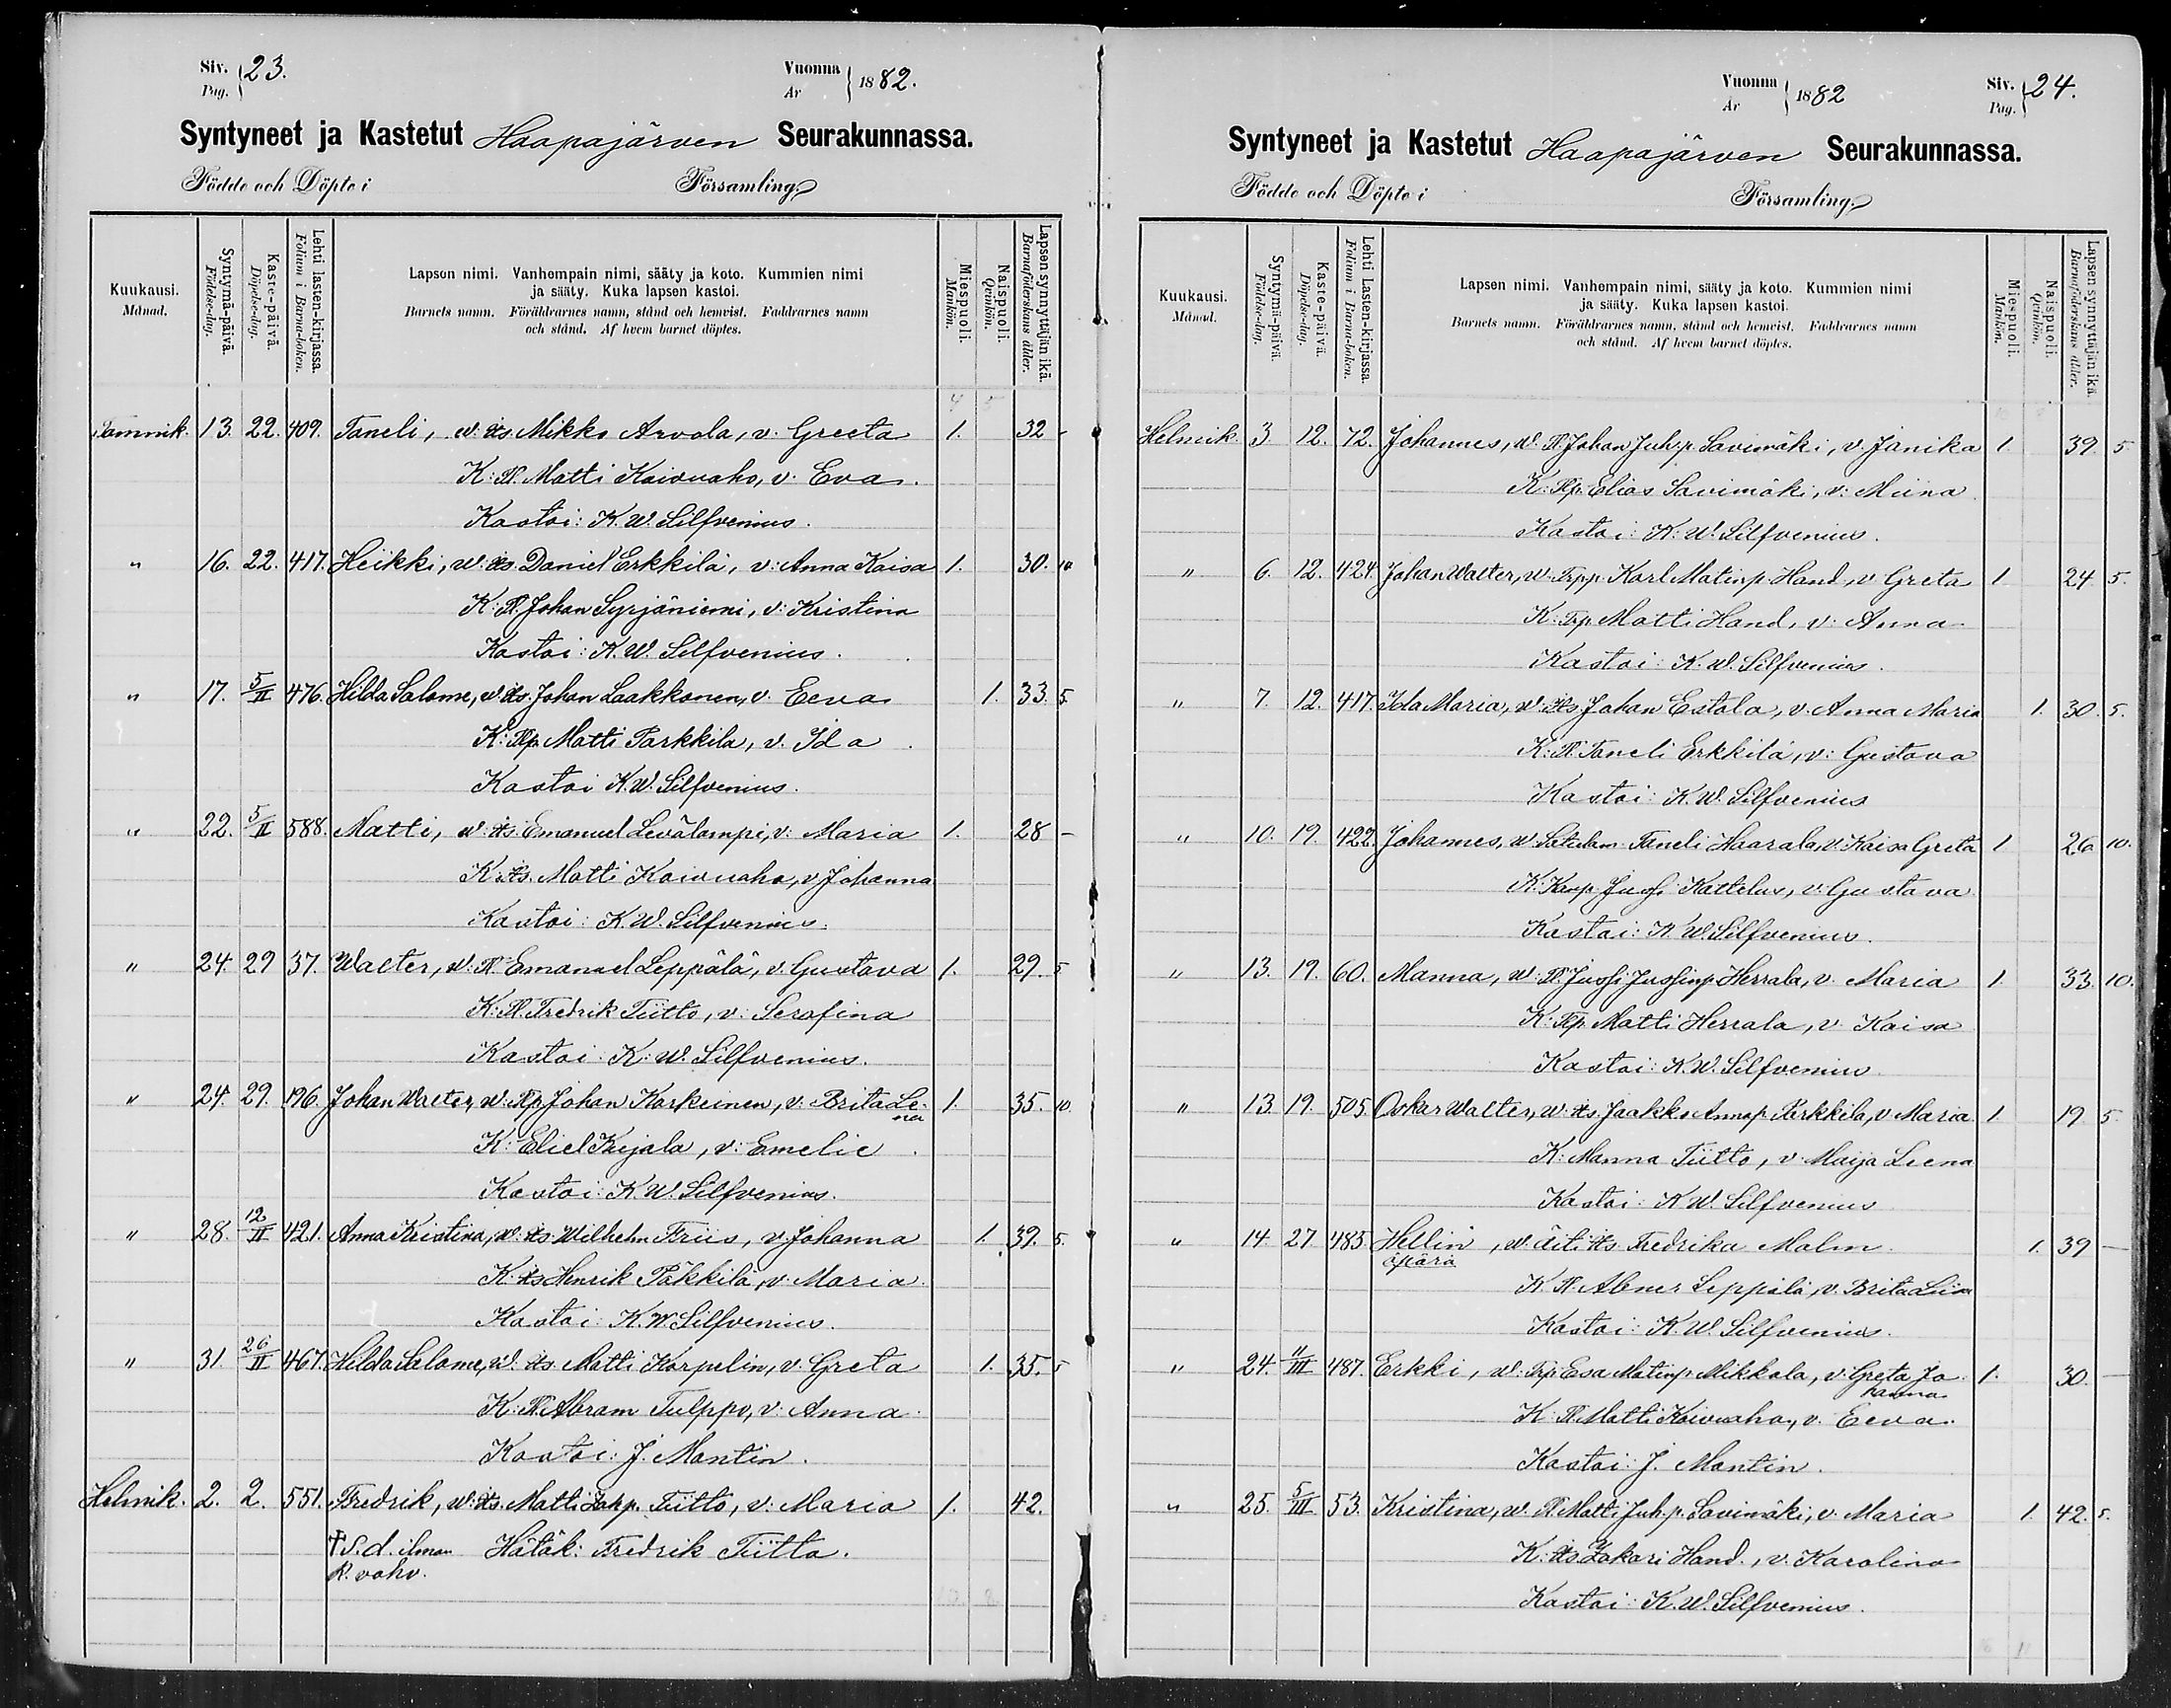 Siv. 23. Vuonna 1882.
Pag. Ar
Syntyneet ja Kastetut Haapajärven Seurakunnassa.
Födde och Döpte i Församling
Kuukausi. Månad.
Syntymä-päivä. Födelse-dag.
Kaste-päivä. Döpelse-dag.
Lehti lasten-kirjassa. Folium i Barna-boken.
Lapsen nimi. Vanhempain nimi, sääty ja koto. Kummien nimi
ja sääty. Kuka lapsen kastoi.
Barnets namn. Föräldrarnes namn, stånd och hemvist. Faddrarnes namn
och stånd. Af hvem barnet döptes.
Miespuoli. Mankön.
Naispuoli. Qvinkön.
Lapsen synnyttäjän ikä. Barnaföderskans ålder.
Tammik. 13. 22. 409. Taneli, w. Its Mikko Arvola, v. Greeta 1. 32 -
K: Tl. Matti Koivuaho, v. Eva.
Kastoi: K. W. Silfvenius.
" 16. 22. 417. Heikki, w. Its. Daniel Erkkilä, v: Anna Kaisa 1. 30. 10
K: Tl. Johan Syrjäniemi, v: Kristina
Kastoi: K. W. Silfvenius.
" 17. 5/II 476. Hilda Salome, w. Its. Johan Laakkonen, v. Eeva 1. 33. 5.
K: Tlp. Matti Parkkila, v. Ida
Kastoi K. W. Silfvenius.
" 22. 5/II 588. Matti, w. Its. Emanuel Levälampi, v: Maria 1. 28 -
K: Its. Matti Koivuaho, v Johanna
Kastoi: K. W. Silfvenius.
" 24. 29 37. Walter, w. Tl. Emanuel Leppälä, v. Gustava 1. 29. 5
K: Tl. Fredrik Tiitto, v: Serafina
Kastoi: K: W. Silfvenius.
" 24. 29. 196. Johan Walter, w. Tlp. Johan Karkeinen, v. Brita Le- 1. 35. 10
na
K: Eliel Kujala, v: Emelie
Kastoi: K. W. Silfvenius.
" 28. 12/II 421. Anna Kristina, w: Its. Wilhelm Friis, v. Johanna 1. 39. 5.
K: Its Henrik Päkkilä, v. Maria
Kastoi: K. W. Silfvenius.
" 31 26/II 467. Hilda Salome, w. Its. Matti Karpelin, v: Greta 1. 35. 5
K: Tl. Abram Tulppo, v: Anna
Kastoi: J. Mantin.
Helmik. 2. 2. 551. Fredrik, w: Its. Matti Tiitto, v: Maria 1. 42.
† S. d. ilman Hätäk: Fredrik Tiitto.
K. vahv.
Vuonna 1882 Siv. 24.
Ar Pag.
Syntyneet ja Kastetut Haapajärven Seurakunnassa.
Födde och Döpte i Församling
Kuukausi. Månad.
Syntymä-päivä. Födelse-dag.
Kaste-päivä. Döpelse-dag.
Lehti Lasten-kirjassa. Folium i Barna-boken.
Lapsen nimi. Vanhempain nimi, sääty ja koto. Kummien nimi
ja sääty. Kuka lapsen kastoi.
Barnets namn. Föräldrarnes namn, stånd och hemvist. Faddrarnes namn
och stånd. Af hvem barnet döptes.
Miespuoli. Mankön.
Naispuoli. Qvinkön.
Lapsen synnyttäjän ikä. Barnaföderskans ålder.
Helmik. 3 12. 72. Johannes, w. Tl. Johan Juh:p. Savimäki, v. Janika 1. 39. 5.
K: Tlp. Elias Savimäki, v: Miina
Kastoi: K. W. Silfvenius.
" 6. 12. 424. Johan Walter, w. Trpp. Karl Matinp. Hand, v Greta 1 24 5.
K: Trp. Matti Hand, v. Anna
Kastoi: K. W. Silfvenius.
" 7. 12. 417. Ida Maria, w. Its Johan Eskola, v. Anna Maria 1. 30. 5.
K: Tl. Taneli Erkkilä, v: Gustava
Kastoi: K. W. Silfvenius
" 10. 19. 422. Johannes, w. Taneli Haarala, v. Kaisa Greta 1 26 10.
K: Jussi Kattelus, v: Gustava
Kastoi: K. W. Silfvenius.
" 13. 19. 60. Manna, w. Tl. Jussi Jussinp. Herrala, v. Maria 1. 33. 10.
K: Tlp. Matti Herrala, v. Kaisa
Kastoi: K. W. Silfvenius
" 13. 19. 505. Oskar Walter, w. Its. Jaakko Parkkila, v Maria 1. 19 5.
K: Manna Tiitto, v Maija Leena
Kastoi: K. W. Silfvenius
" 14. 27. 485. Hellin, w. äiti Its Fredrika Malm 1. 39 -
äpärä
K. Tl. Abner Leppälä, v. Brita Liisa
Kastoi: K. W. Silfvenius.
" 24. 11/III 487. Erkki, w. Trp Esa Matinp. Mikkola, v. Greta Jo 1. 30. -
hanna
K. Tl. Matti Koivuaho, v. Eeva.
Kastoi: J. Mantin.
" 25. 5/III 53. Kristina, w. Tl. Matti Juh.p. Savimäki, v. Maria 1. 42. 5.
K: Its Zakari Hand., v. Karolina
Kastoi: K. W. Silfvenius.